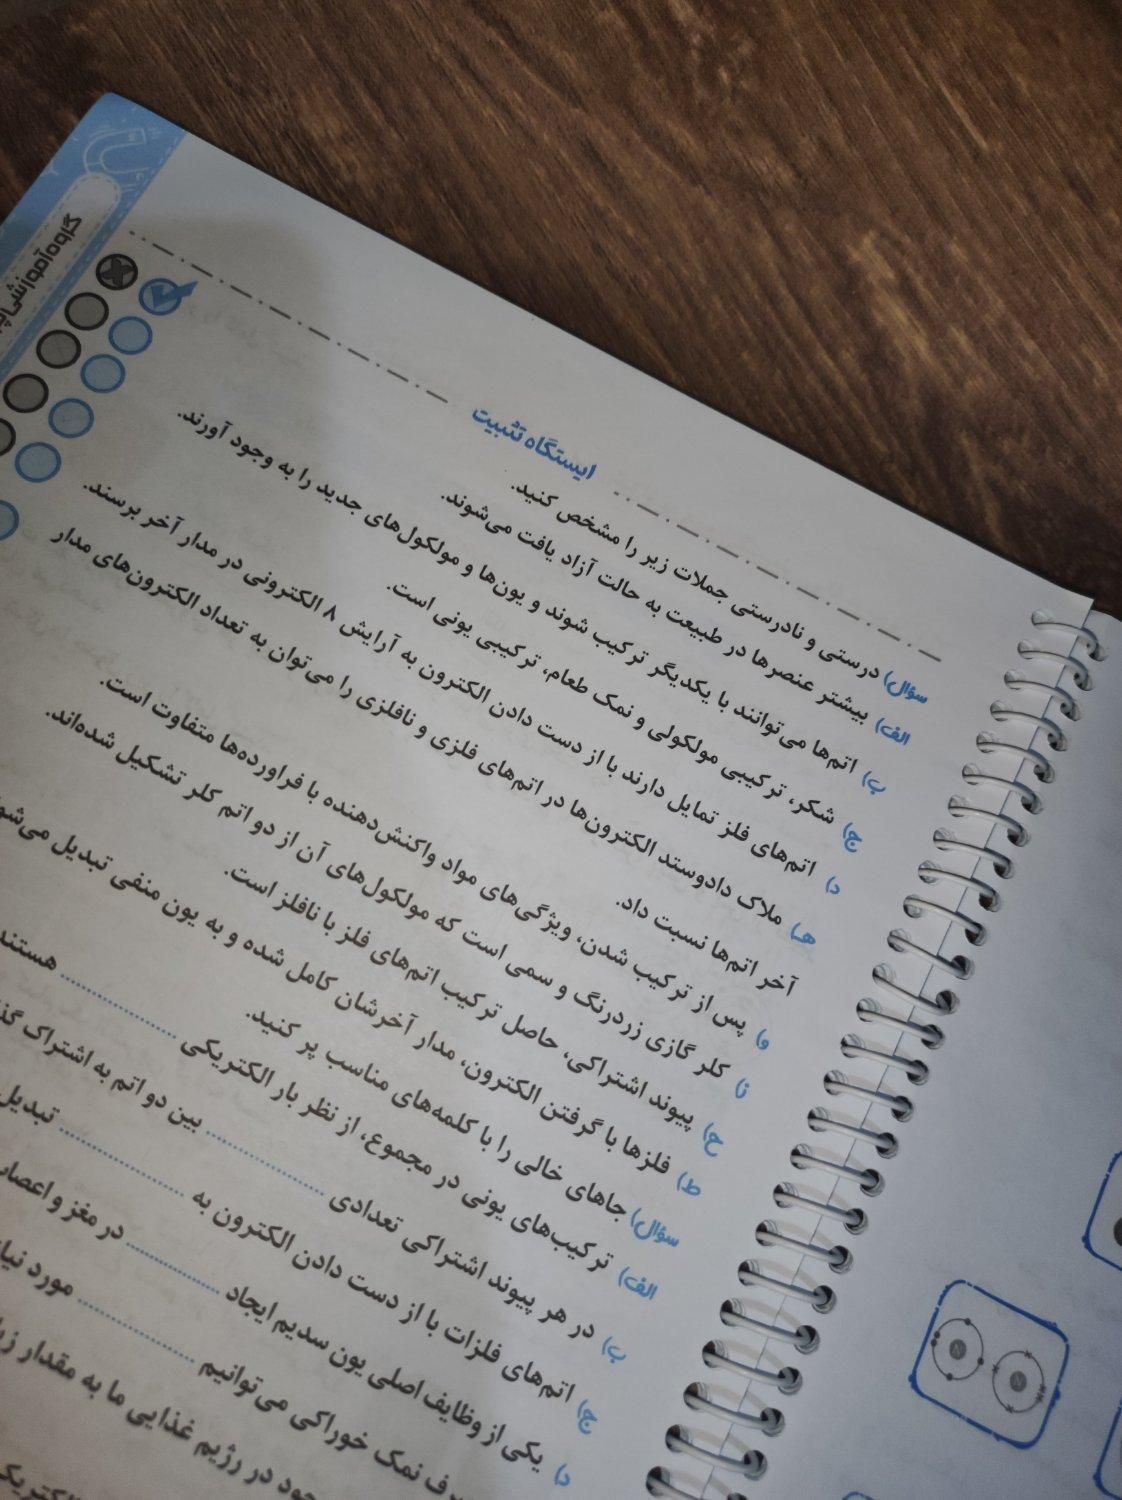 گروه آموزشی
ایستگاه تثبیت
سؤال) درستی و نادرستی جملات زیر را مشخص کنید.
الف) بیشتر عنصرها در طبیعت به حالت آزاد یافت می‌شوند.
ب) اتم‌ها می‌توانند با یکدیگر ترکیب شوند و یون‌ها و مولکول‌های جدید را به وجود آورند.
ج) شکر، ترکیبی مولکولی و نمک طعام، ترکیبی یونی است.
د) اتم‌های فلز تمایل دارند با از دست دادن الکترون به آرایش ۸ الکترونی در مدار آخر برسند.
هـ) ملاک دادوستد الکترون‌ها در اتم‌های فلزی و نافلزی را می‌توان به تعداد الکترون‌های مدار
آخر اتم‌ها نسبت داد.
و) پس از ترکیب شدن، ویژگی‌های مواد واکنش‌دهنده با فراورده‌ها متفاوت است.
ز) کلر گازی زردرنگ و سمی است که مولکول‌های آن از دو اتم کلر تشکیل شده‌اند.
ح) پیوند اشتراکی، حاصل ترکیب اتم‌های فلز با نافلز است.
ط) فلزها با گرفتن الکترون، مدار آخرشان کامل شده و به یون منفی تبدیل
سؤال) جاهای خالی را با کلمه‌های مناسب پر کنید.
الف) ترکیب‌های یونی در مجموع، از نظر بار الکتریکی .................... هستند
ب) در هر پیوند اشتراکی تعدادی .................... بین دو اتم به اشتراک
ج) اتم‌های فلزات با از دست دادن الکترون به .................... تبدیل
د) یکی از وظایف اصلی یون سدیم ایجاد .................... در مغز و
نمک خوراکی می‌توانیم .................... مورد
در رژیم غذایی ما به مقدار